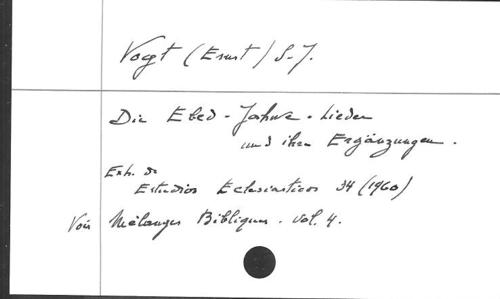 Vogt (Ernst) S.J.
Die Ebed-Jahwe-Lieder
und ihre Ergänzungen.
Extr. de
Estudios Eclesiasticos 34 (1960)
Voir Mélanges Bibliques. vol. 4.